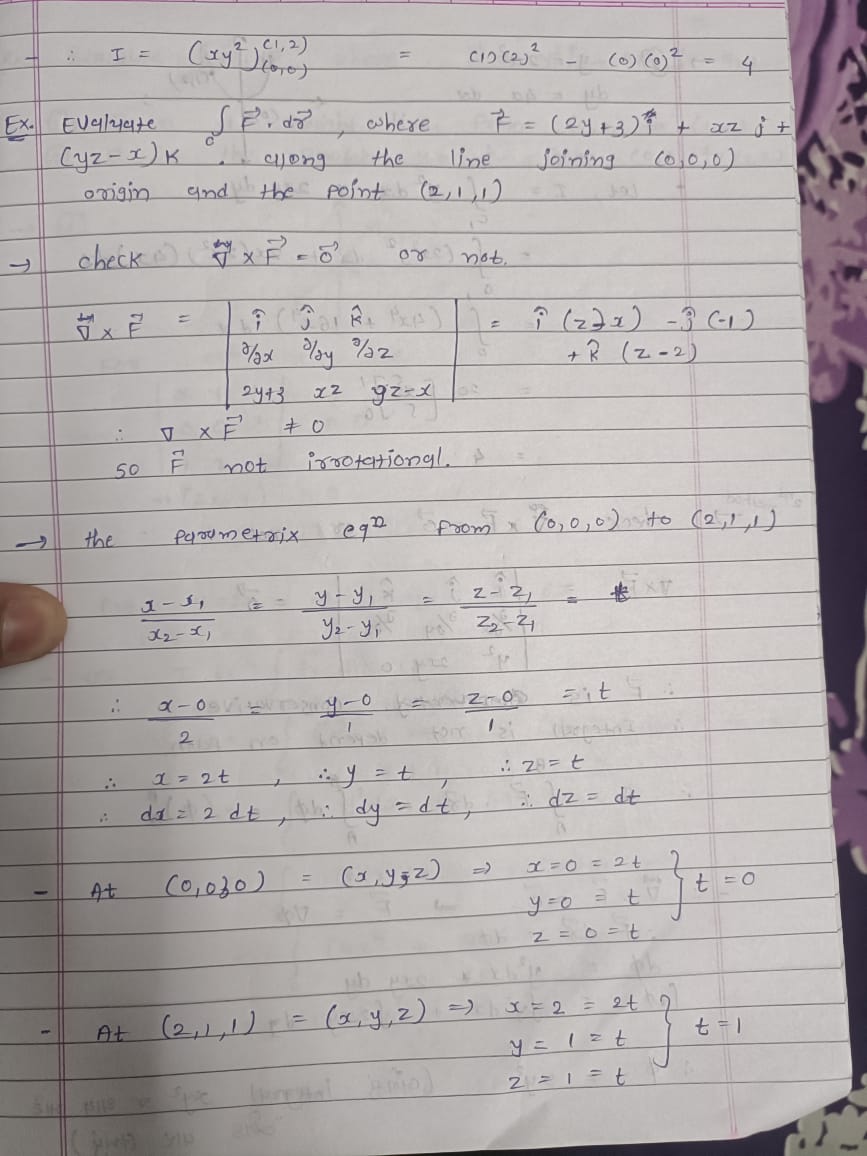 - ∴ I = (xy²)₍₀,₀₎⁽¹,²⁾ = (1)(2)² - (0)(0)² = 4
Ex. Evaluate ∫c F⃗ · dr⃗, where F⃗ = (2y+3) î + xz j +
(yz-x) k . along the line joining (0,0,0)
origin and the point (2,1,1)
→ check ∇ × F⃗ = 0⃗ or not.
∇ × F⃗ = | î ĵ k̂ | = î (z-x) - ĵ (-1)
∂/∂x ∂/∂y ∂/∂z + k̂ (z-2)
2y+3 xz yz-x
∴ ∇ × F⃗ ≠ 0
so F⃗ not irrotational.
→ the parametrix eqⁿ from (0,0,0) to (2,1,1)
x-x₁/x₂-x₁ = y-y₁/y₂-y₁ = z-z₁/z₂-z₁ =
∴ x-0/2 = y-0/1 = z-0/1 = t
∴ x = 2t , ∴ y = t , ∴ z = t
∴ dx = 2 dt , ∴ dy = dt, ∴ dz = dt
- At (0,0,0) = (x,y,z) ⇒ x=0 = 2t
y=0 = t } t = 0
z = 0 = t
- At (2,1,1) = (x,y,z) ⇒ x = 2 = 2t
y = 1 = t } t = 1
z = 1 = t